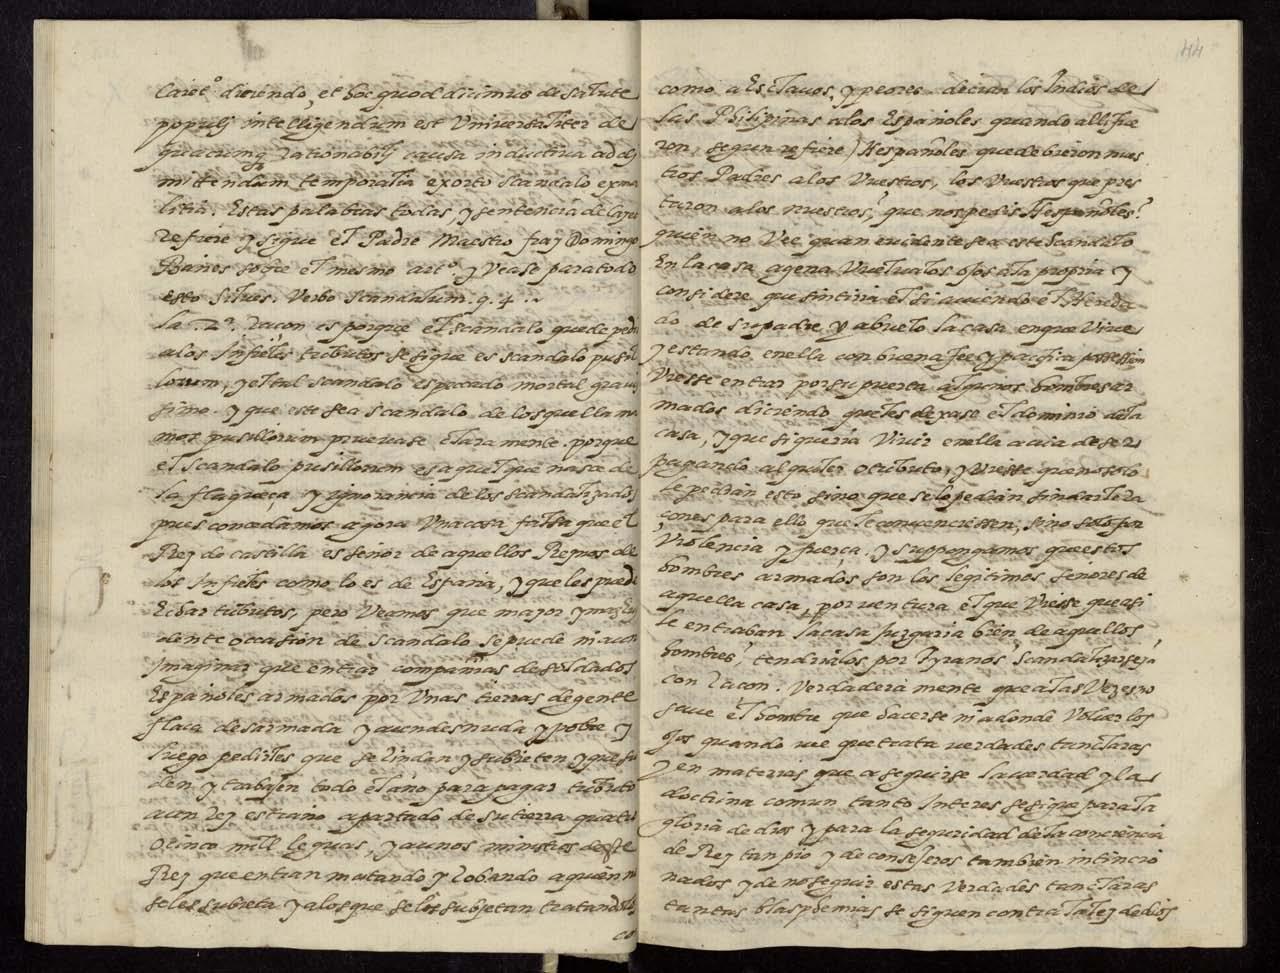 Caiet.º diciendo, et hoc quod dicimus de salute
populj intelligendum est Vniversaliter de
quacumq rationabilj causa inductiva ad di
mittendum temporalia exorto scandalo ex ma
litia. Estas palabras todas, y sentencia de Caye
refiere y sigue el Padre Maestro fray Domingo
Bañes sobre el mesmo art.º y Vease para todo
esto Silues. Verbo scandalum. q. 4.
La 2ª. racon es porque el scandalo que de pedir
a los Infieles tributos se sigue es scandalo pusil
lorum, y el tal scandalo es peccado mortal graui
simo. y que este sea scandalo de los que llama
mos pusillorum pruevase claramente. porque
el scandalo pusillorum es aquel que nasce de
la flaqueça, y ygnorancia de los scandalizados
pues concedamos agora Vna cosa falsa que el
Rey de castilla es señor de aquellos Reynos de
los Infieles como lo es de España, y que les puede
Echar tributos, pero Veamos que mayor y mas Eui
dente occasion de scandalo se puede ni aun
imaginar que entrar compañias de soldados
Españoles armados por Vnas tierras de gente
flaca desarmada y aun desnuda y pobre y
luego pedirles que se rindan y subieten y que su
den y trabajen todo el año para pagar tributo
a un Rey estraño apartado de su tierra quatro
o cinco mill leguas, y a unos ministros deste
Rey que entran matando y robando a quien no
se les subieta y a los que se les subjetan tratandolos
co
44
como a Esclauos, y peores. decian los Indios de
las Philipinas a los Españoles quando alli fue
ron, segun refiere) Hespañoles que debieron nues
tros Padres a los Vuestros, los Vuestros que pres
taron a los nuestros? que nos pedis Hespañoles?
quien no Vee quan euidente sea este scandalo
En la casa agena Vuelua los ojos a la propria y
considere que sintiria el si auiendo el Hereda
do de su padre y abuelo la casa en que Viue
y estando en ella con buena fee y pacifica possession
Viesse entrar por su puerta algunos hombres ar
mados diciendo que les dexase el dominio de la
casa, y que si queria Viuir en ella auia de ser
pagando alquiler o tributo, y Viesse que no solo
le pedian esto sino que se lo pedian sin darle ra
çones para ello que le convenciessen, sino solo por
Violencia y fuerça. y suppongamos que estos
hombres armados son los legitimos señores de
aquella casa, por ventura el que Viesse que asi
le entraban la casa juzgaria bien de aquellos
hombres? tendrialos por Tyranos, scandalizarseya
con racon. Verdaderamente que a las Vezes no
saue el hombre que hacerse ni adonde Voluer los
ojos quando ve que trata verdades tan claras
y en materias que a seguirse la verdad y la
doctrina comun tanto Interes se sigue para la
gloria de dios y para la seguridad de la conciencia
de Rey tan pio y de consejeros tambien intincio
nados y de no seguir estas Verdades tan claras
tantas blasphemias se siguen contra la ley de dios